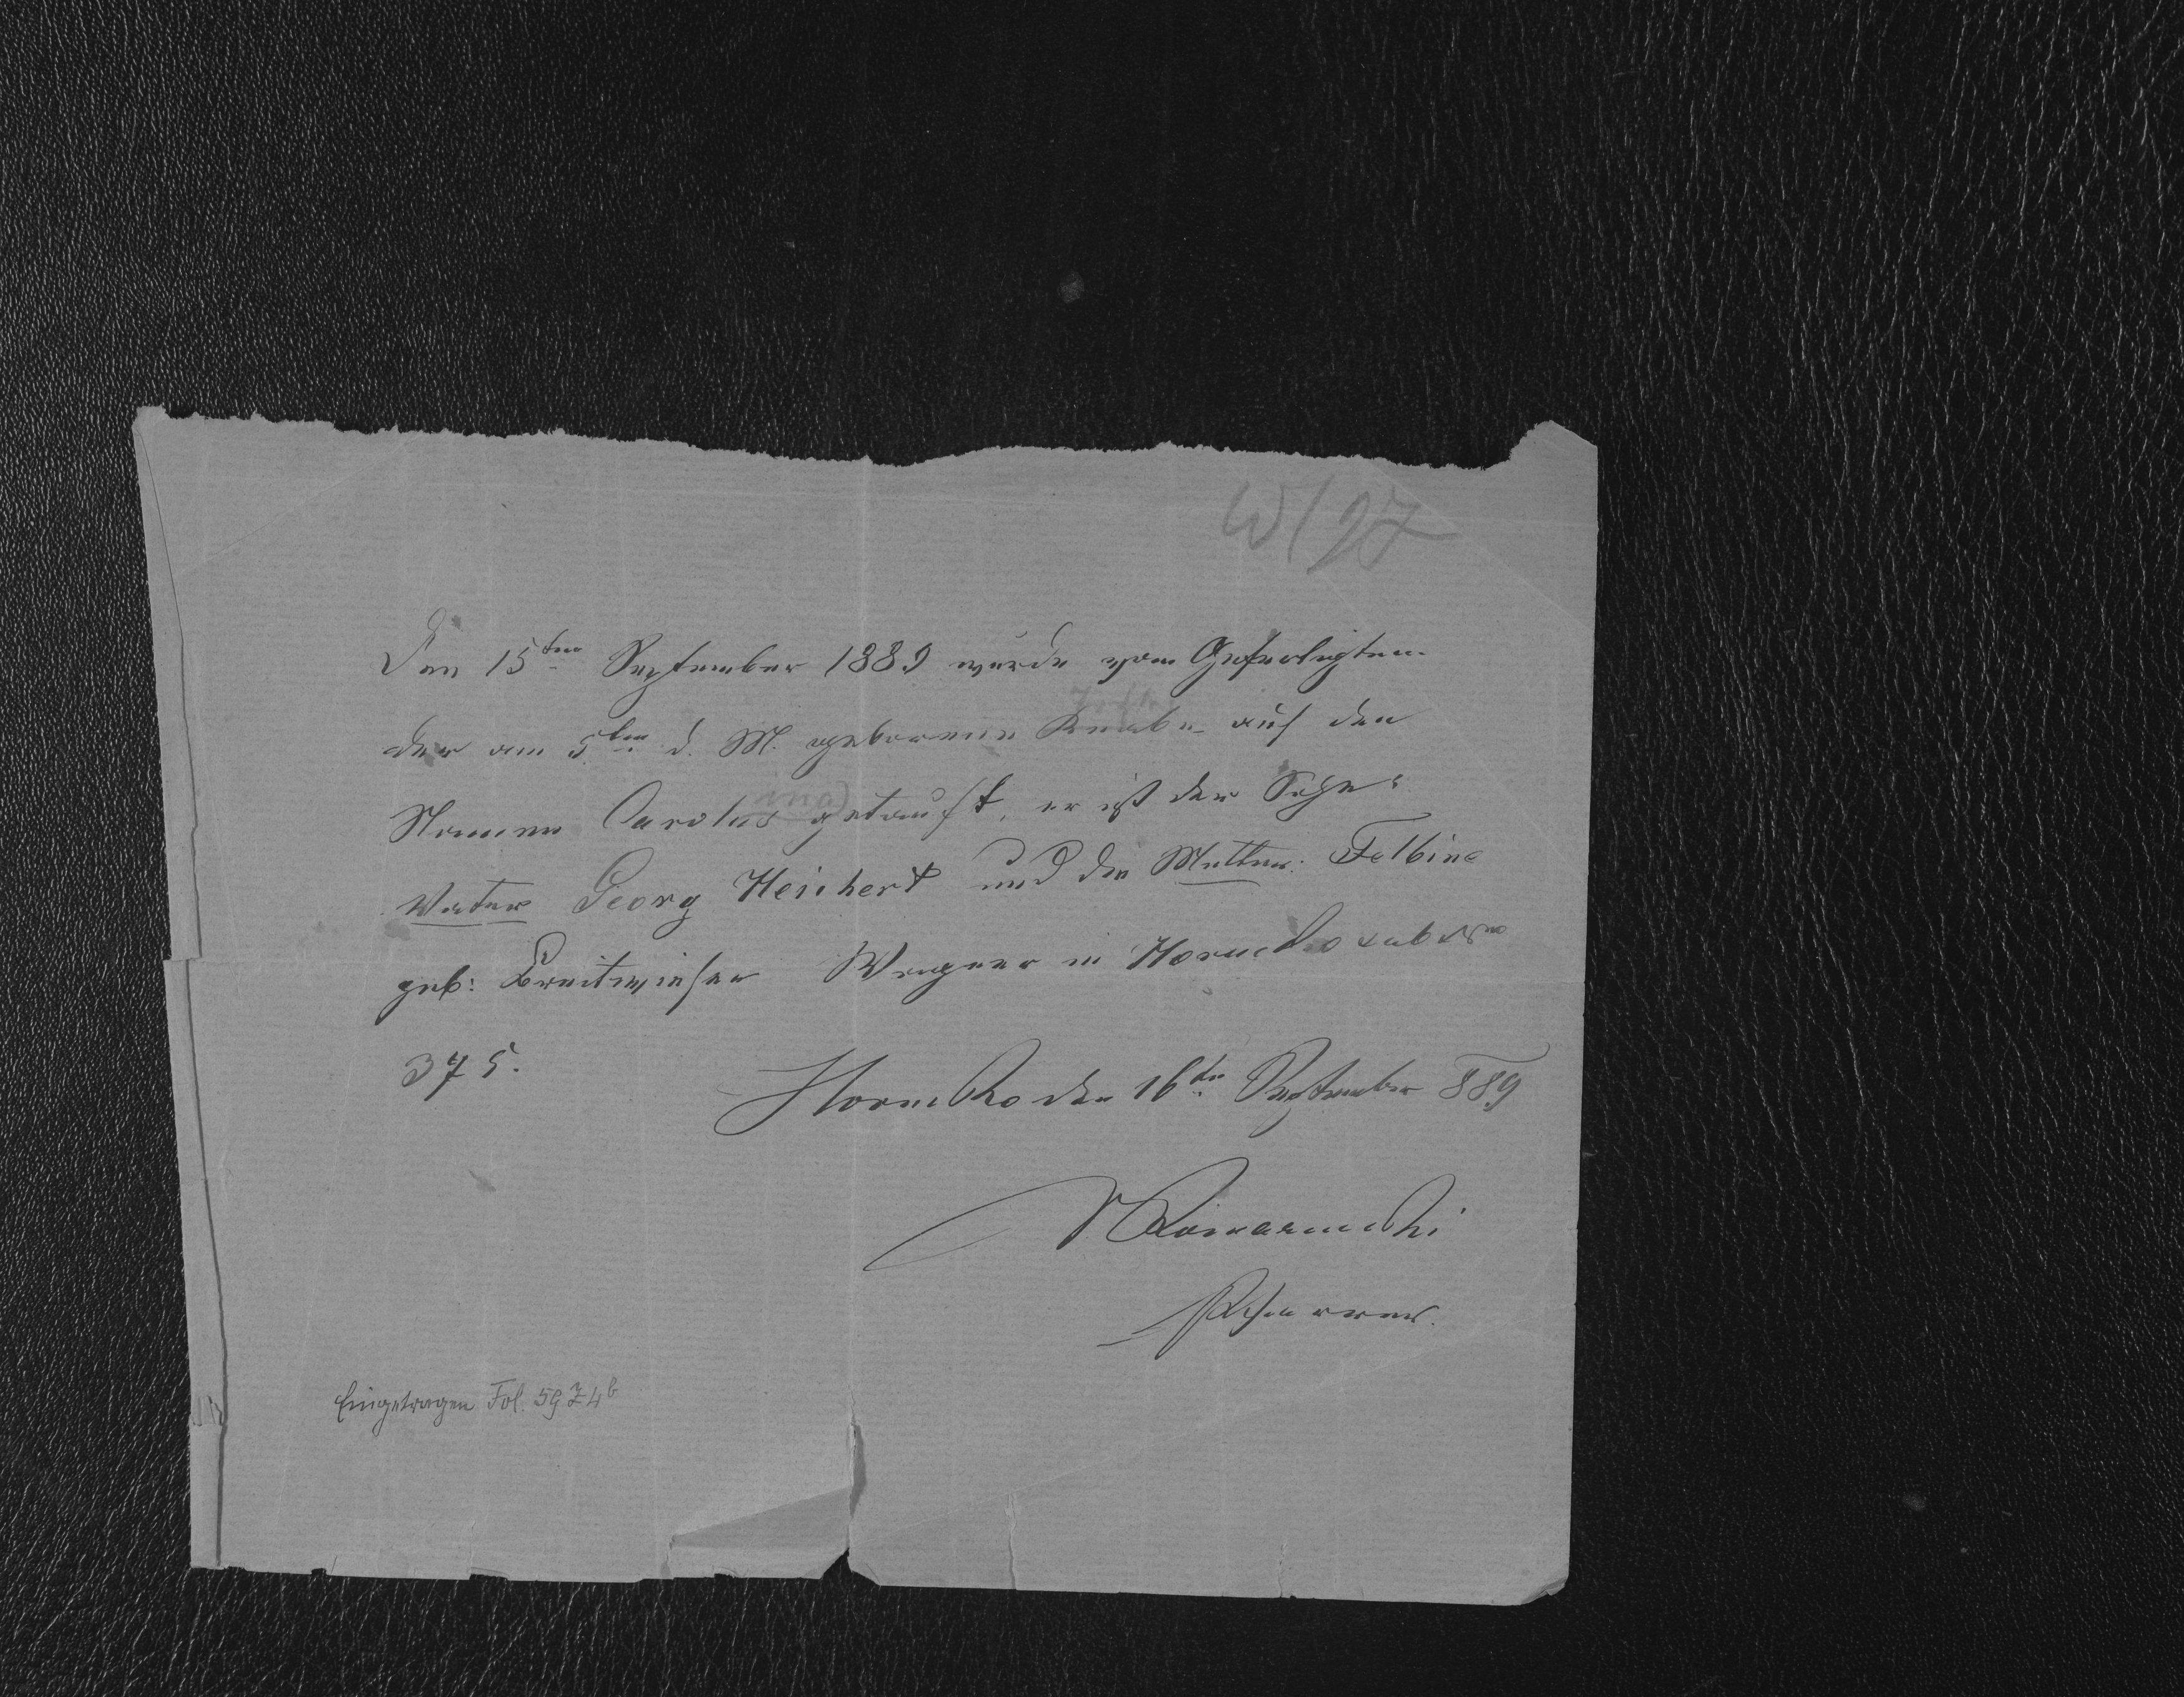 W/97
Den 15ten September 1889 wurde vom Gefertigten
der am 5ten d. M. geborene Knabe auf den
Namen Carolus getauft, er ist der Sohn:
Vater Georg Heichert und die Mutter: Felbine
geb: Breitwieser Wagner in
375.
den 16ten September 889
Pfarrer.
Eingetragen Fol. 59 Z 4b